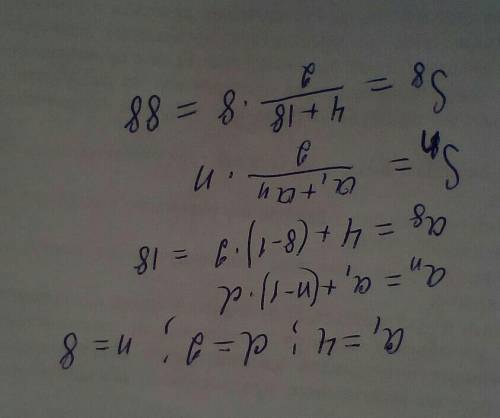 a₁ = 4 ; d = 2 ; n = 8
aₙ = a₁ + (n-1)·d
a₈ = 4 + (8-1)·2 = 18
Sₙ = (a₁ + aₙ)/2 · n
S₈ = (4 + 18)/2 · 8 = 88